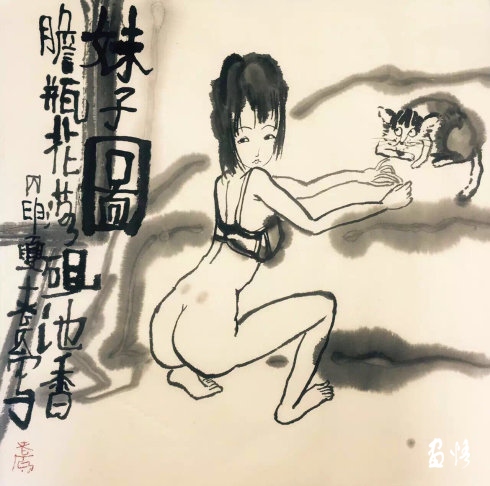 妹子圖
膽瓶花落硯池香
丙申